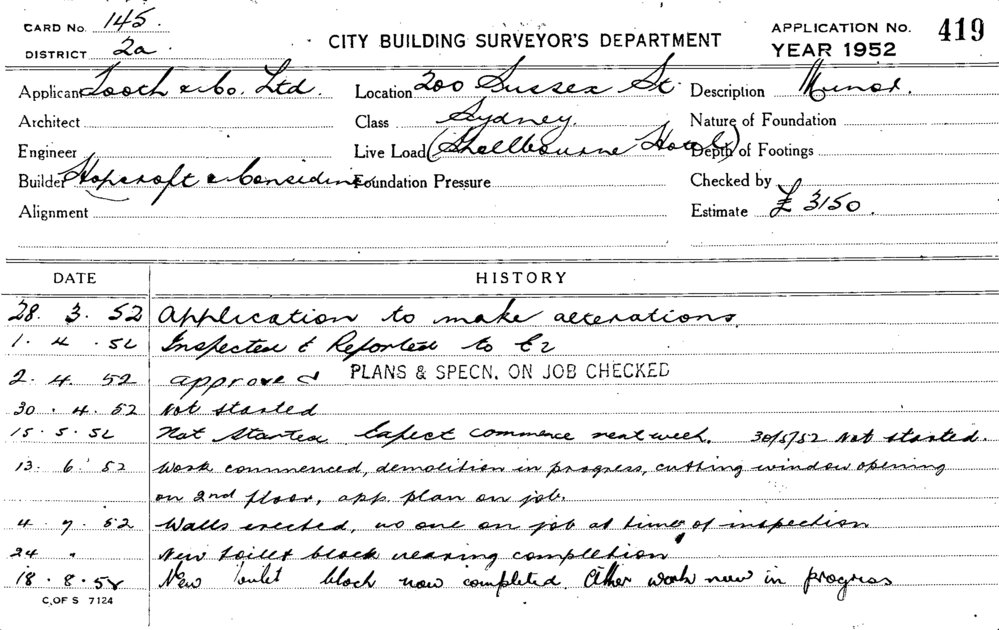 CARD No. 145.
DISTRICT 2a.
CITY BUILDING SURVEYOR'S DEPARTMENT
APPLICATION No. 419
YEAR 1952
Applicant Tooth & Co. Ltd. Location 200 Sussex St. Description Minor.
Architect Class Sydney. Nature of Foundation
Engineer Live Load (Shellbourne Hotel) Depth of Footings
Builder Hopcroft & Considine Foundation Pressure Checked by
Alignment Estimate £ 3150.
DATE HISTORY
28. 3. 52 Application to make alterations.
1. 4. 52 Inspected & Reported to
2. 4. 52 approved PLANS & SPECN. ON JOB CHECKED
30. 4. 52 Not started
15. 5. 52 Not started Expect commence next week. 30/5/52 Not started.
13. 6. 52 Work commenced, demolition in progress, cutting window opening
on 2nd floor, app. plan on job.
4. 7. 52 Walls erected, no one on job at time of inspection
24 " New toilet block nearing completion
18. 8. 52 New toilet block now completed. Other work now in progress
C. OF S 7124